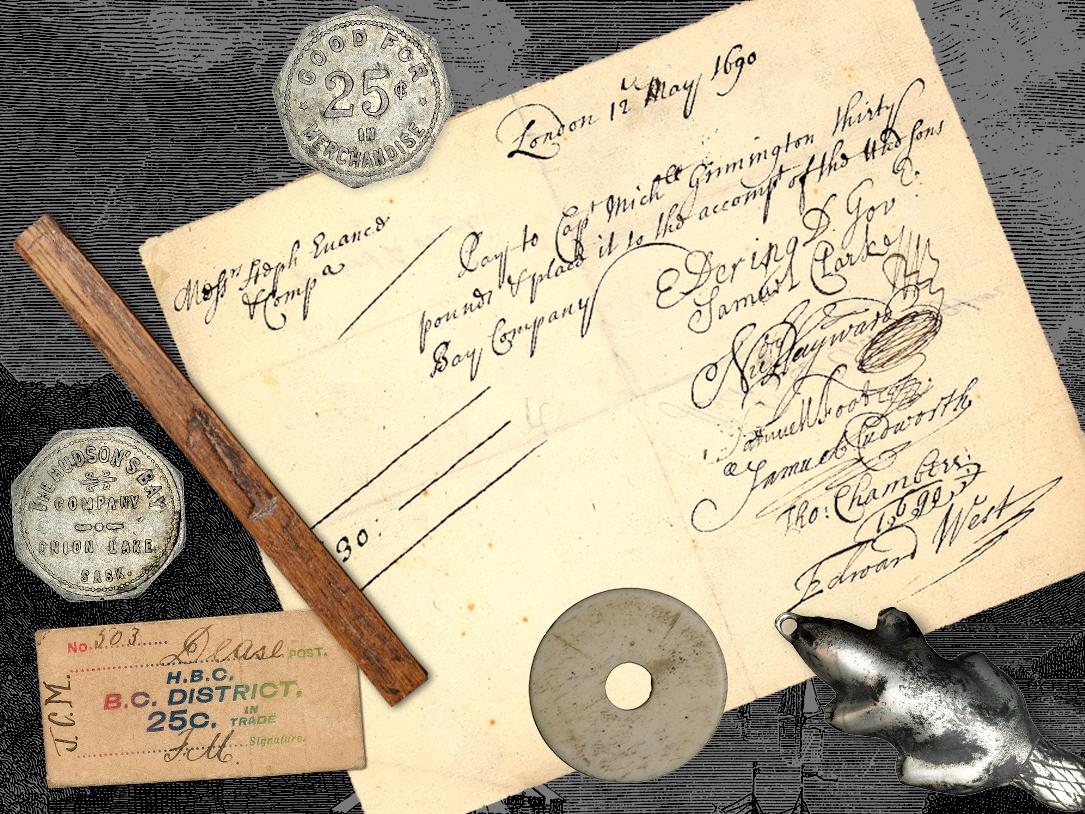 GOOD FOR
25¢
IN
MERCHANDISE
London 12 May 1690
Messrs Steph Evance
& Compa
Pay to Capt Michll Grimington thirty
pounds & place it to the accompt of the Hudsons
Bay Company
E Dering D. Gov
Samuel Clarke
Nic Hayward
Samuell Foote
Samuel Cudworth
Tho: Chambers
1690
Edward West
30:
THE HUDSON'S BAY
COMPANY
ONION LAKE
SASK.
No. 503
Dease POST.
H.B.C.
B.C. DISTRICT.
25C. IN TRADE
Signature.
J.C.M.